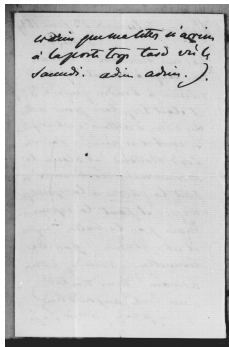 crains que ma lettre n'arrive
à la poste trop tard vu le
samedi. adieu adieu.)